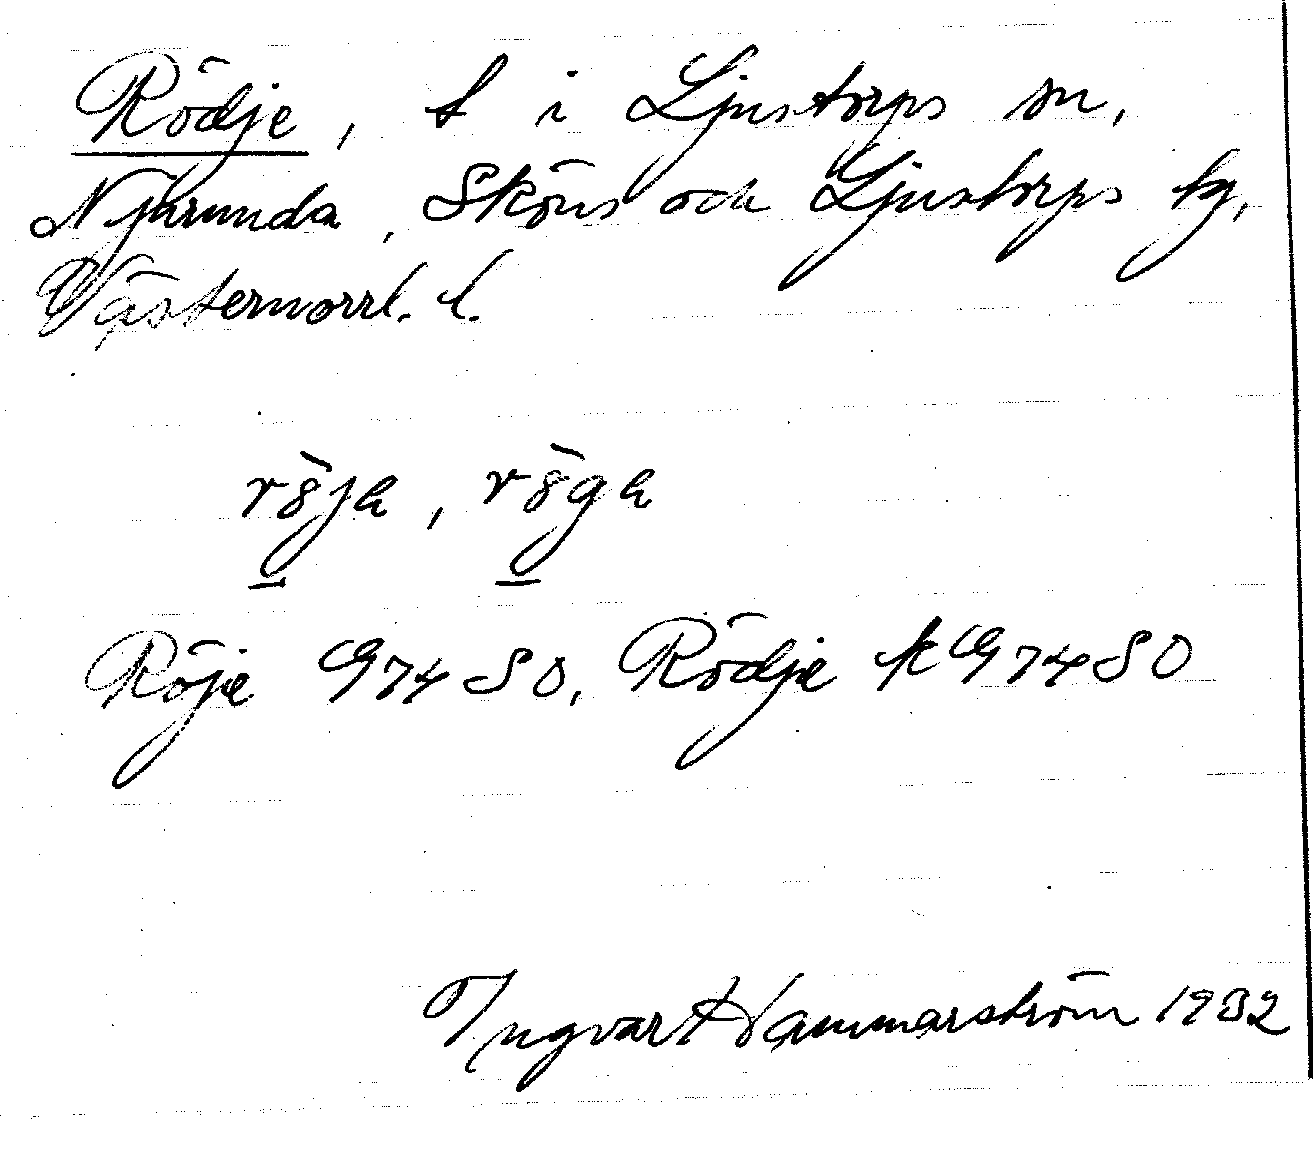 Rödje, t i Ljustorps sn,
Njurunda, Sköns och Ljustorps tg,
Västernorrl. l.
Röje G74SO, Rödje kG74SO
Ingvar Hammarström 1932